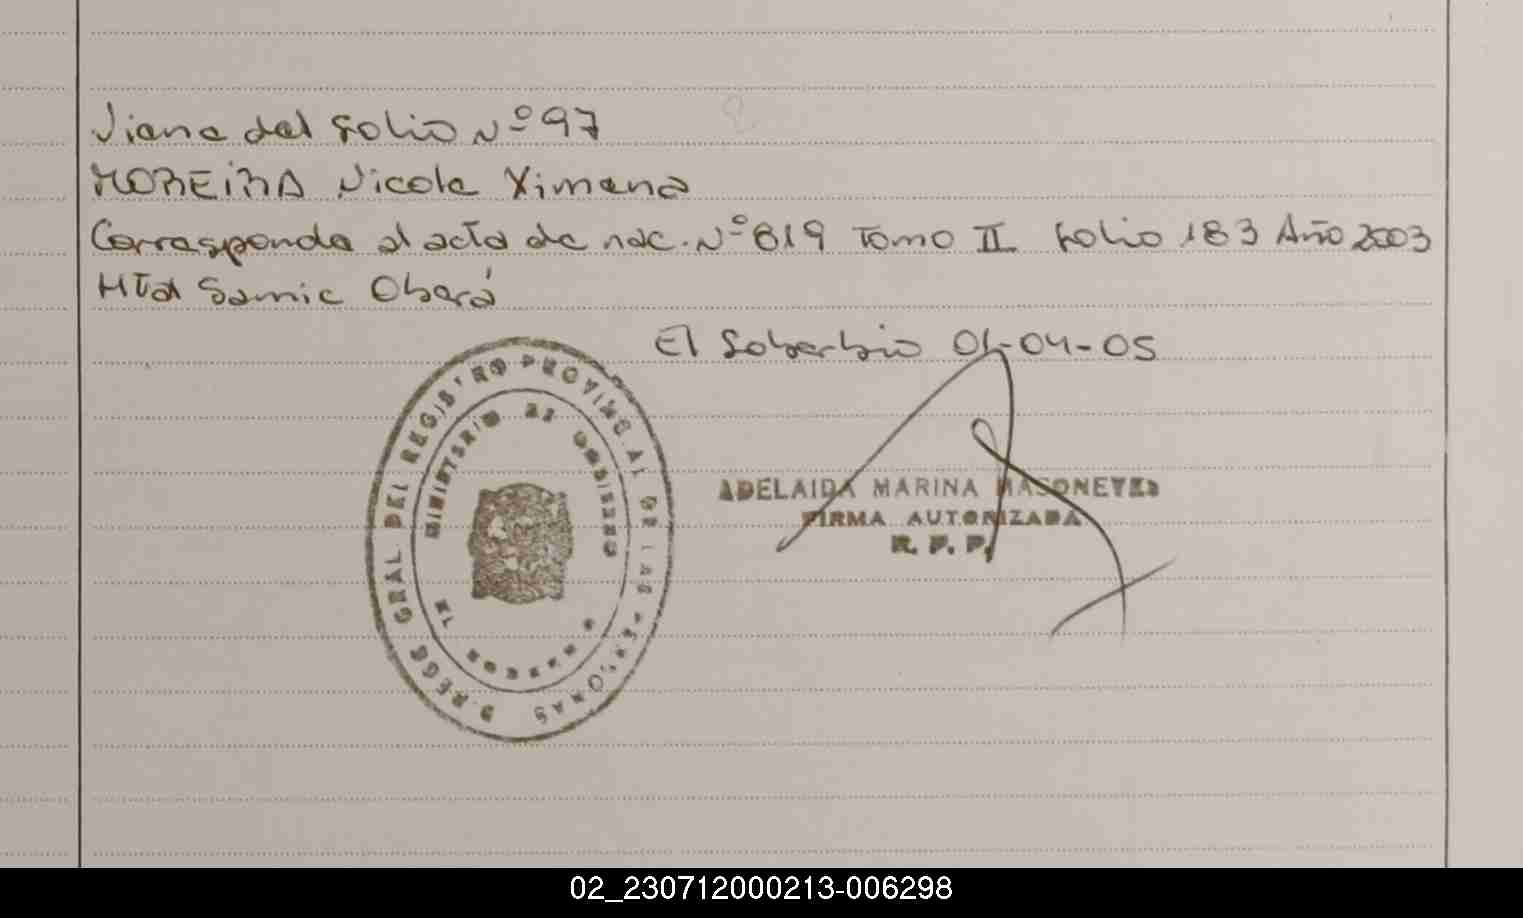 Viene del folio Nº 97
MOREIRA Nicole Ximena
Corresponde al acta de nac. Nº 819 Tomo II folio 183 Año 2003
Htal Samic Oberá
El Soberbio 01-04-05
D.REGE GRAL DEL REGISTRO PROVINCIAL DE LAS PERSONAS
MINISTERIO DE GOBIERNO
ADELAIDA MARINA
FIRMA AUTORIZADA
R. P. P.
02_230712000213-006298